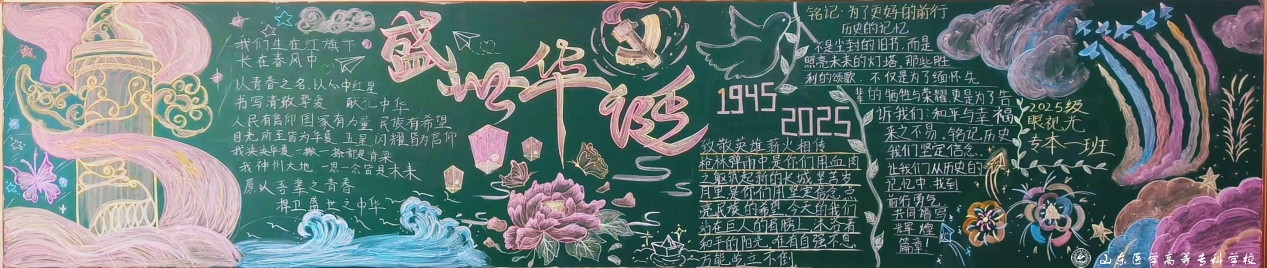 我们生在红旗下
长在春风中
以青春之名,以心中红星
书写清敬尊爱 献礼中华
人民有信仰 国家有力量 民族有希望
目光所至皆为华夏 五星闪耀皆为信仰
我泱泱华夏 一撇一捺都是脊梁
我神州大地 一思一念皆是未来
愿以吾辈之青春
捍卫盛世之中华
盛世华诞
1945
2025
致敬英雄 薪火相传
枪林弹雨中是你们用血肉
之躯筑起新的长城 艰苦岁
月里是你们用坚定信念点
亮民族的希望 今天的我们
站在巨人的肩膀上 沐浴着
和平的阳光 唯有自强不息
方能屹立不倒
铭记·为了更好的前行
历史的记忆
不是尘封的旧书,而是
照亮未来的灯塔,那些胜
利的颂歌,不仅是为了缅怀先
辈的牺牲与荣耀更是为了告
诉我们:和平与幸福
来之不易,铭记历史
我们坚定信念,
让我们从历史的
记忆中,找到
前行勇气
共同谱写
辉煌
篇章!
2025级
眼视光
专本一班
山东医学高等专科学校